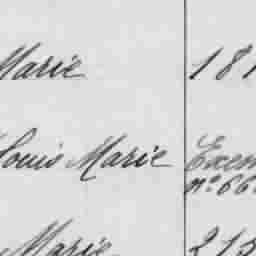 Marie 181
Louis Marie Exem
n° 66
Marie 213